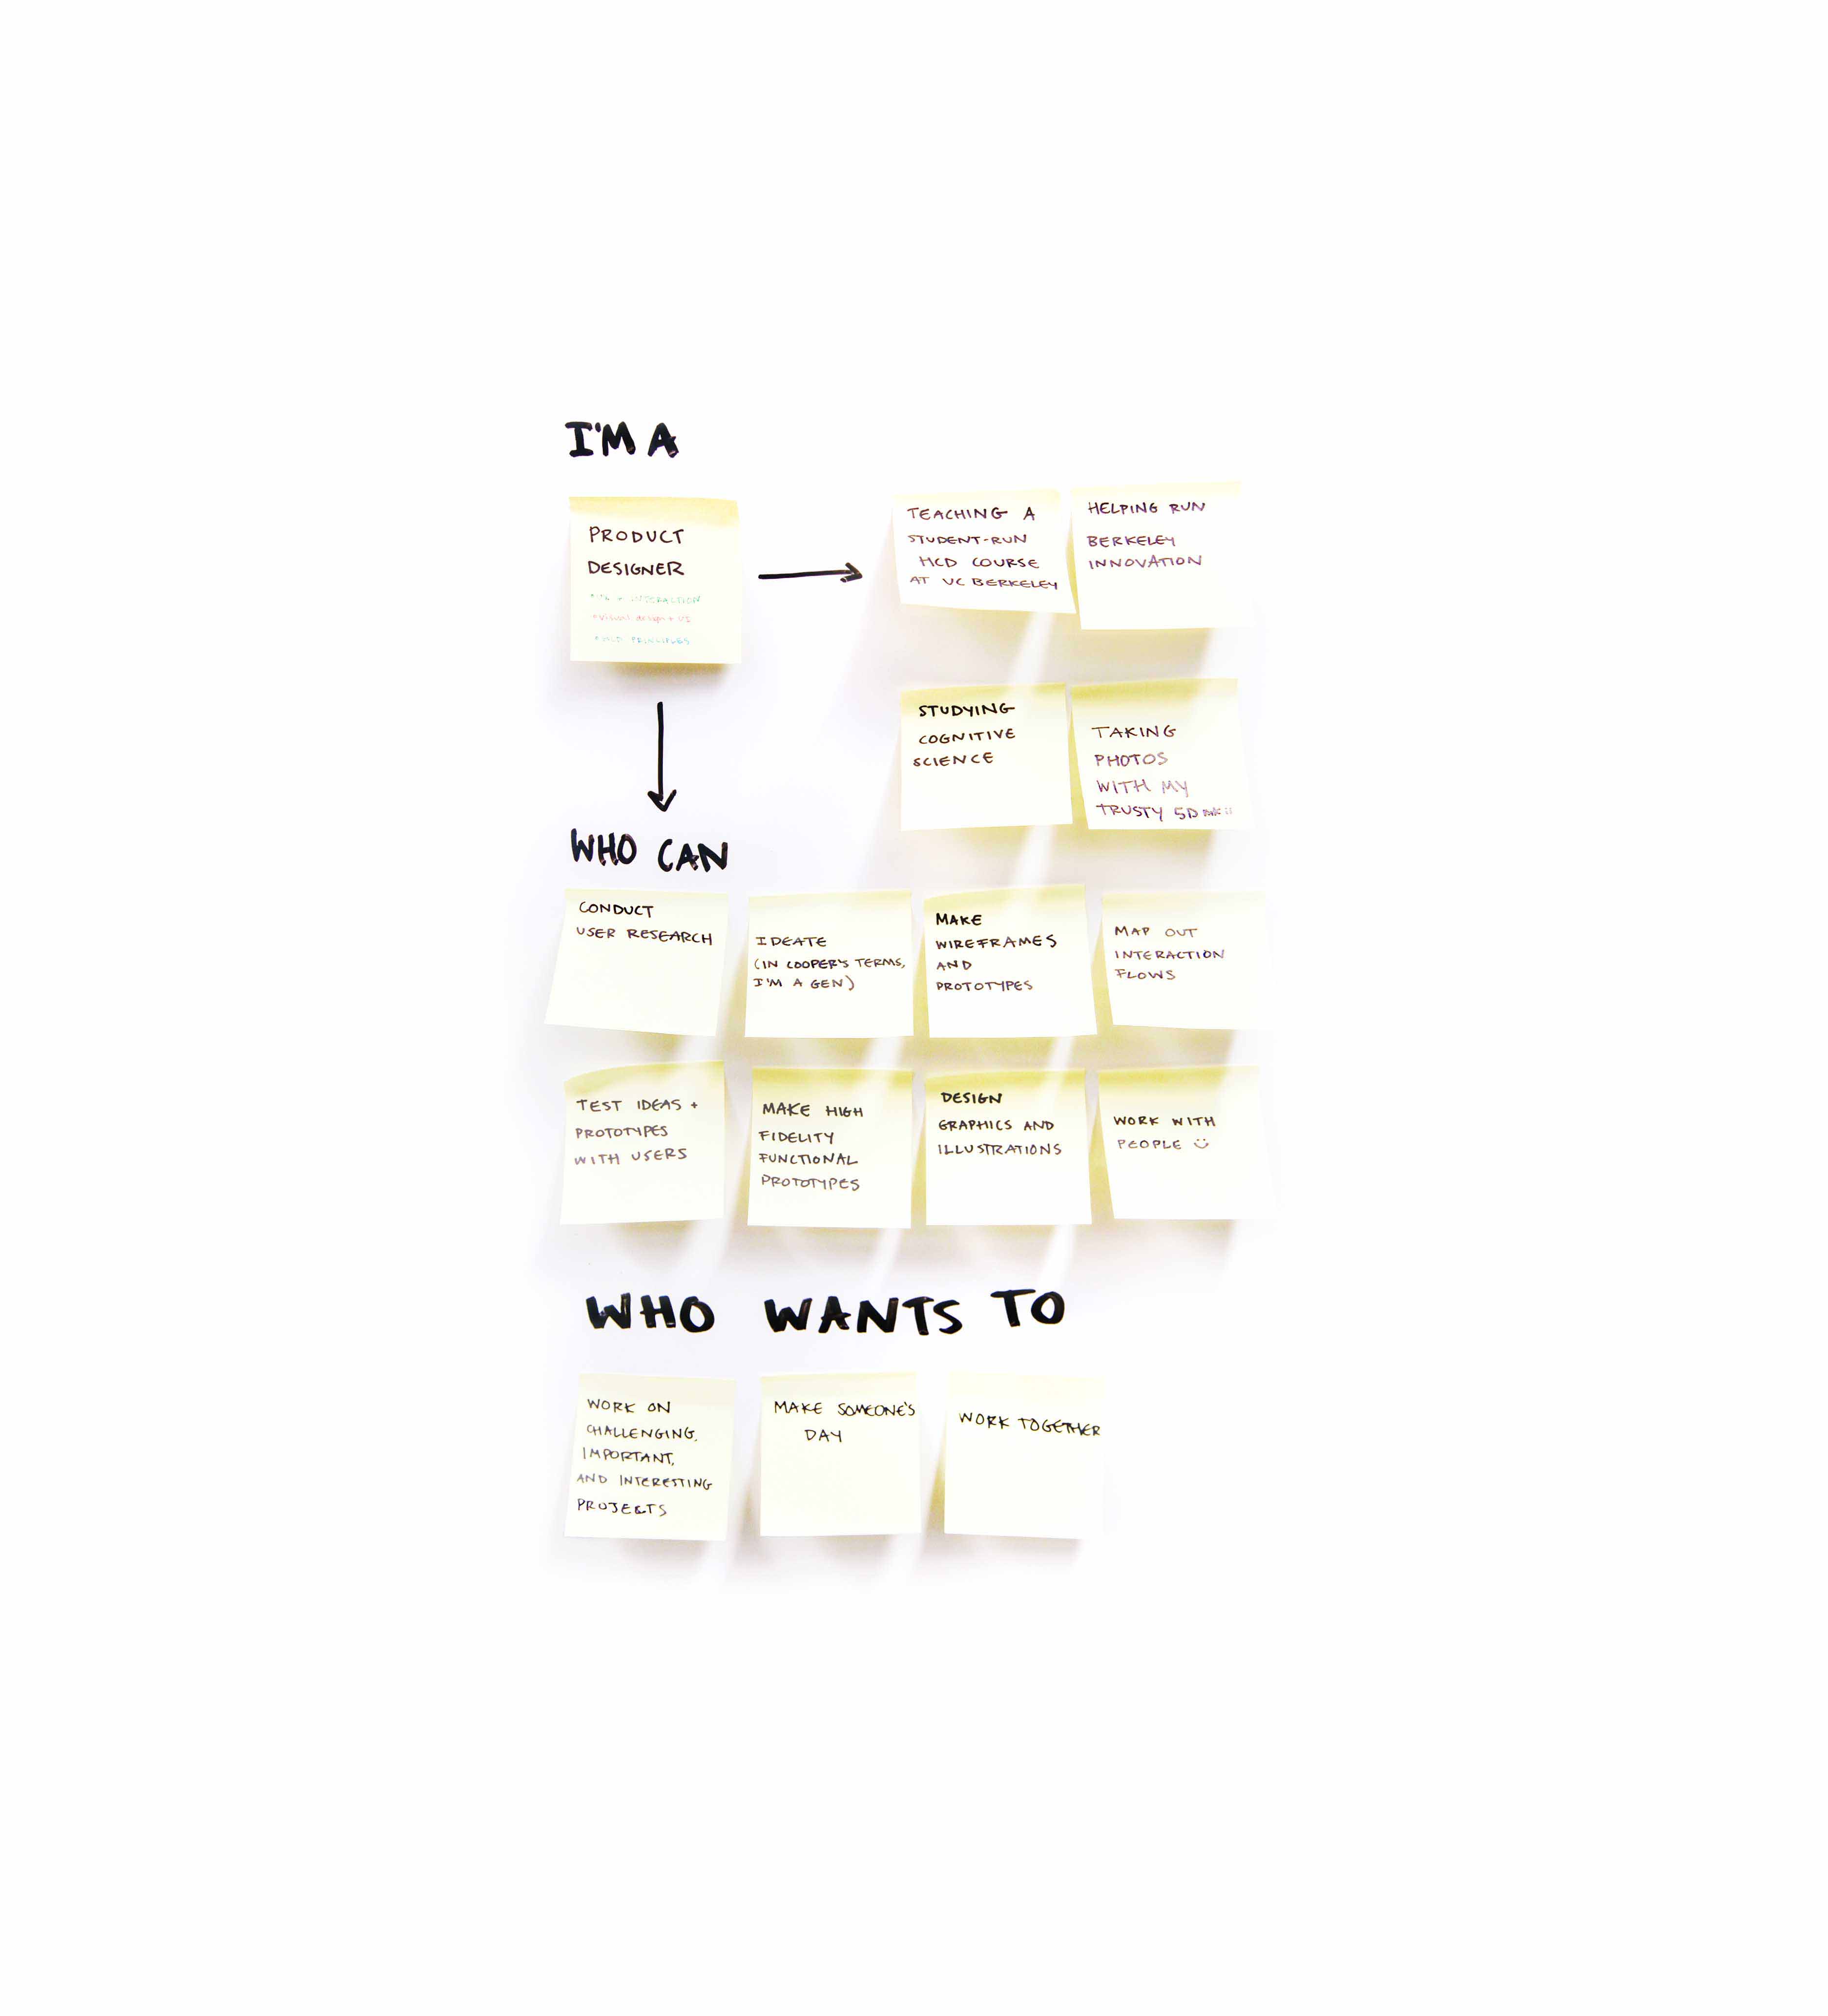 I'M A
PRODUCT
DESIGNER
INTERACTION
visual design + UI
PRINCIPLES
TEACHING A
STUDENT-RUN
HCD COURSE
AT UC BERKELEY
HELPING RUN
BERKELEY
INNOVATION
STUDYING
COGNITIVE
SCIENCE
TAKING
PHOTOS
WITH MY
TRUSTY 5D
WHO CAN
CONDUCT
USER RESEARCH
IDEATE
(IN COOPER'S TERMS,
I'M A GEN)
MAKE
WIREFRAMES
AND
PROTOTYPES
MAP OUT
INTERACTION
FLOWS
TEST IDEAS +
PROTOTYPES
WITH USERS
MAKE HIGH
FIDELITY
FUNCTIONAL
PROTOTYPES
DESIGN
GRAPHICS AND
ILLUSTRATIONS
WORK WITH
PEOPLE
WHO WANTS TO
WORK ON
CHALLENGING,
IMPORTANT,
AND INTERESTING
PROJECTS
MAKE SOMEONE'S
DAY
WORK TOGETHER